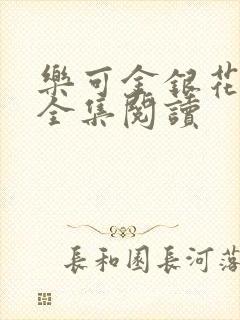 樂可金銀花
全集閱讀
長和園長河落